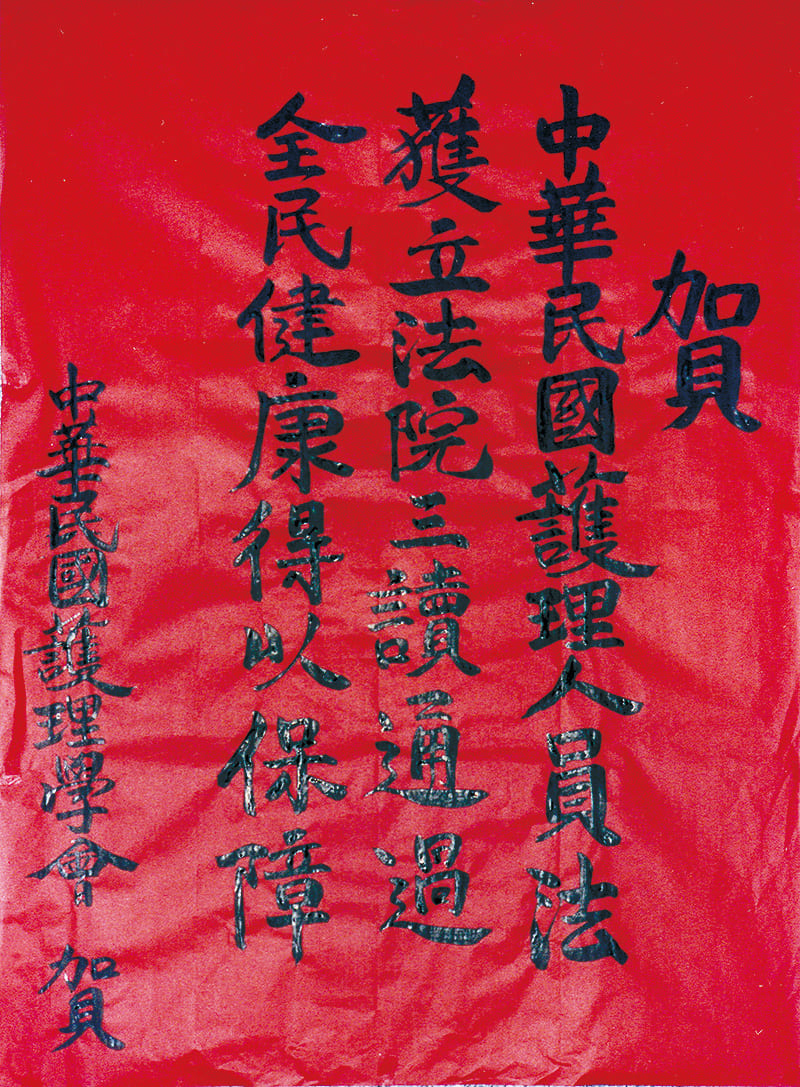 賀
中華民國護理人員法
獲立法院三讀通過
全民健康得以保障
中華民國護理學會 賀